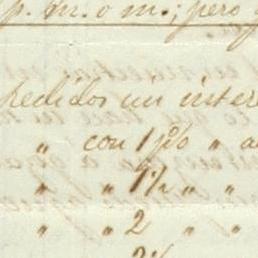 p. m. o m.; pero
pedidos un inter
" con 1 p% " a
" " 1½ " "
" " 2 " "